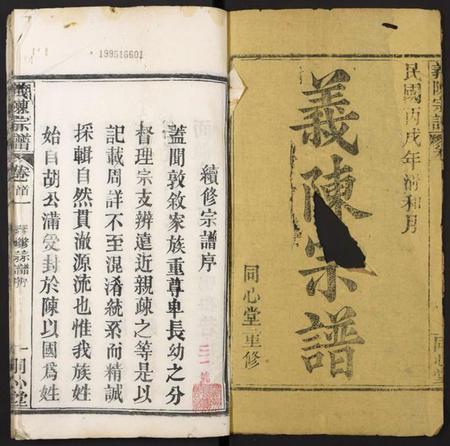 民國丙戌年清和月
義陳宗譜
同心堂重修
義陳宗譜
同心堂
199516601
續修宗譜序
蓋聞敦敘家族重尊卑長幼之分
督理宗支辨遠近親疎之等是以
記載周詳不至混淆統系而精誠
採輯自然貫澈源流也惟我族姓
始自胡公滿受封於陳以國為姓
義陳宗譜
卷首
一
同心堂